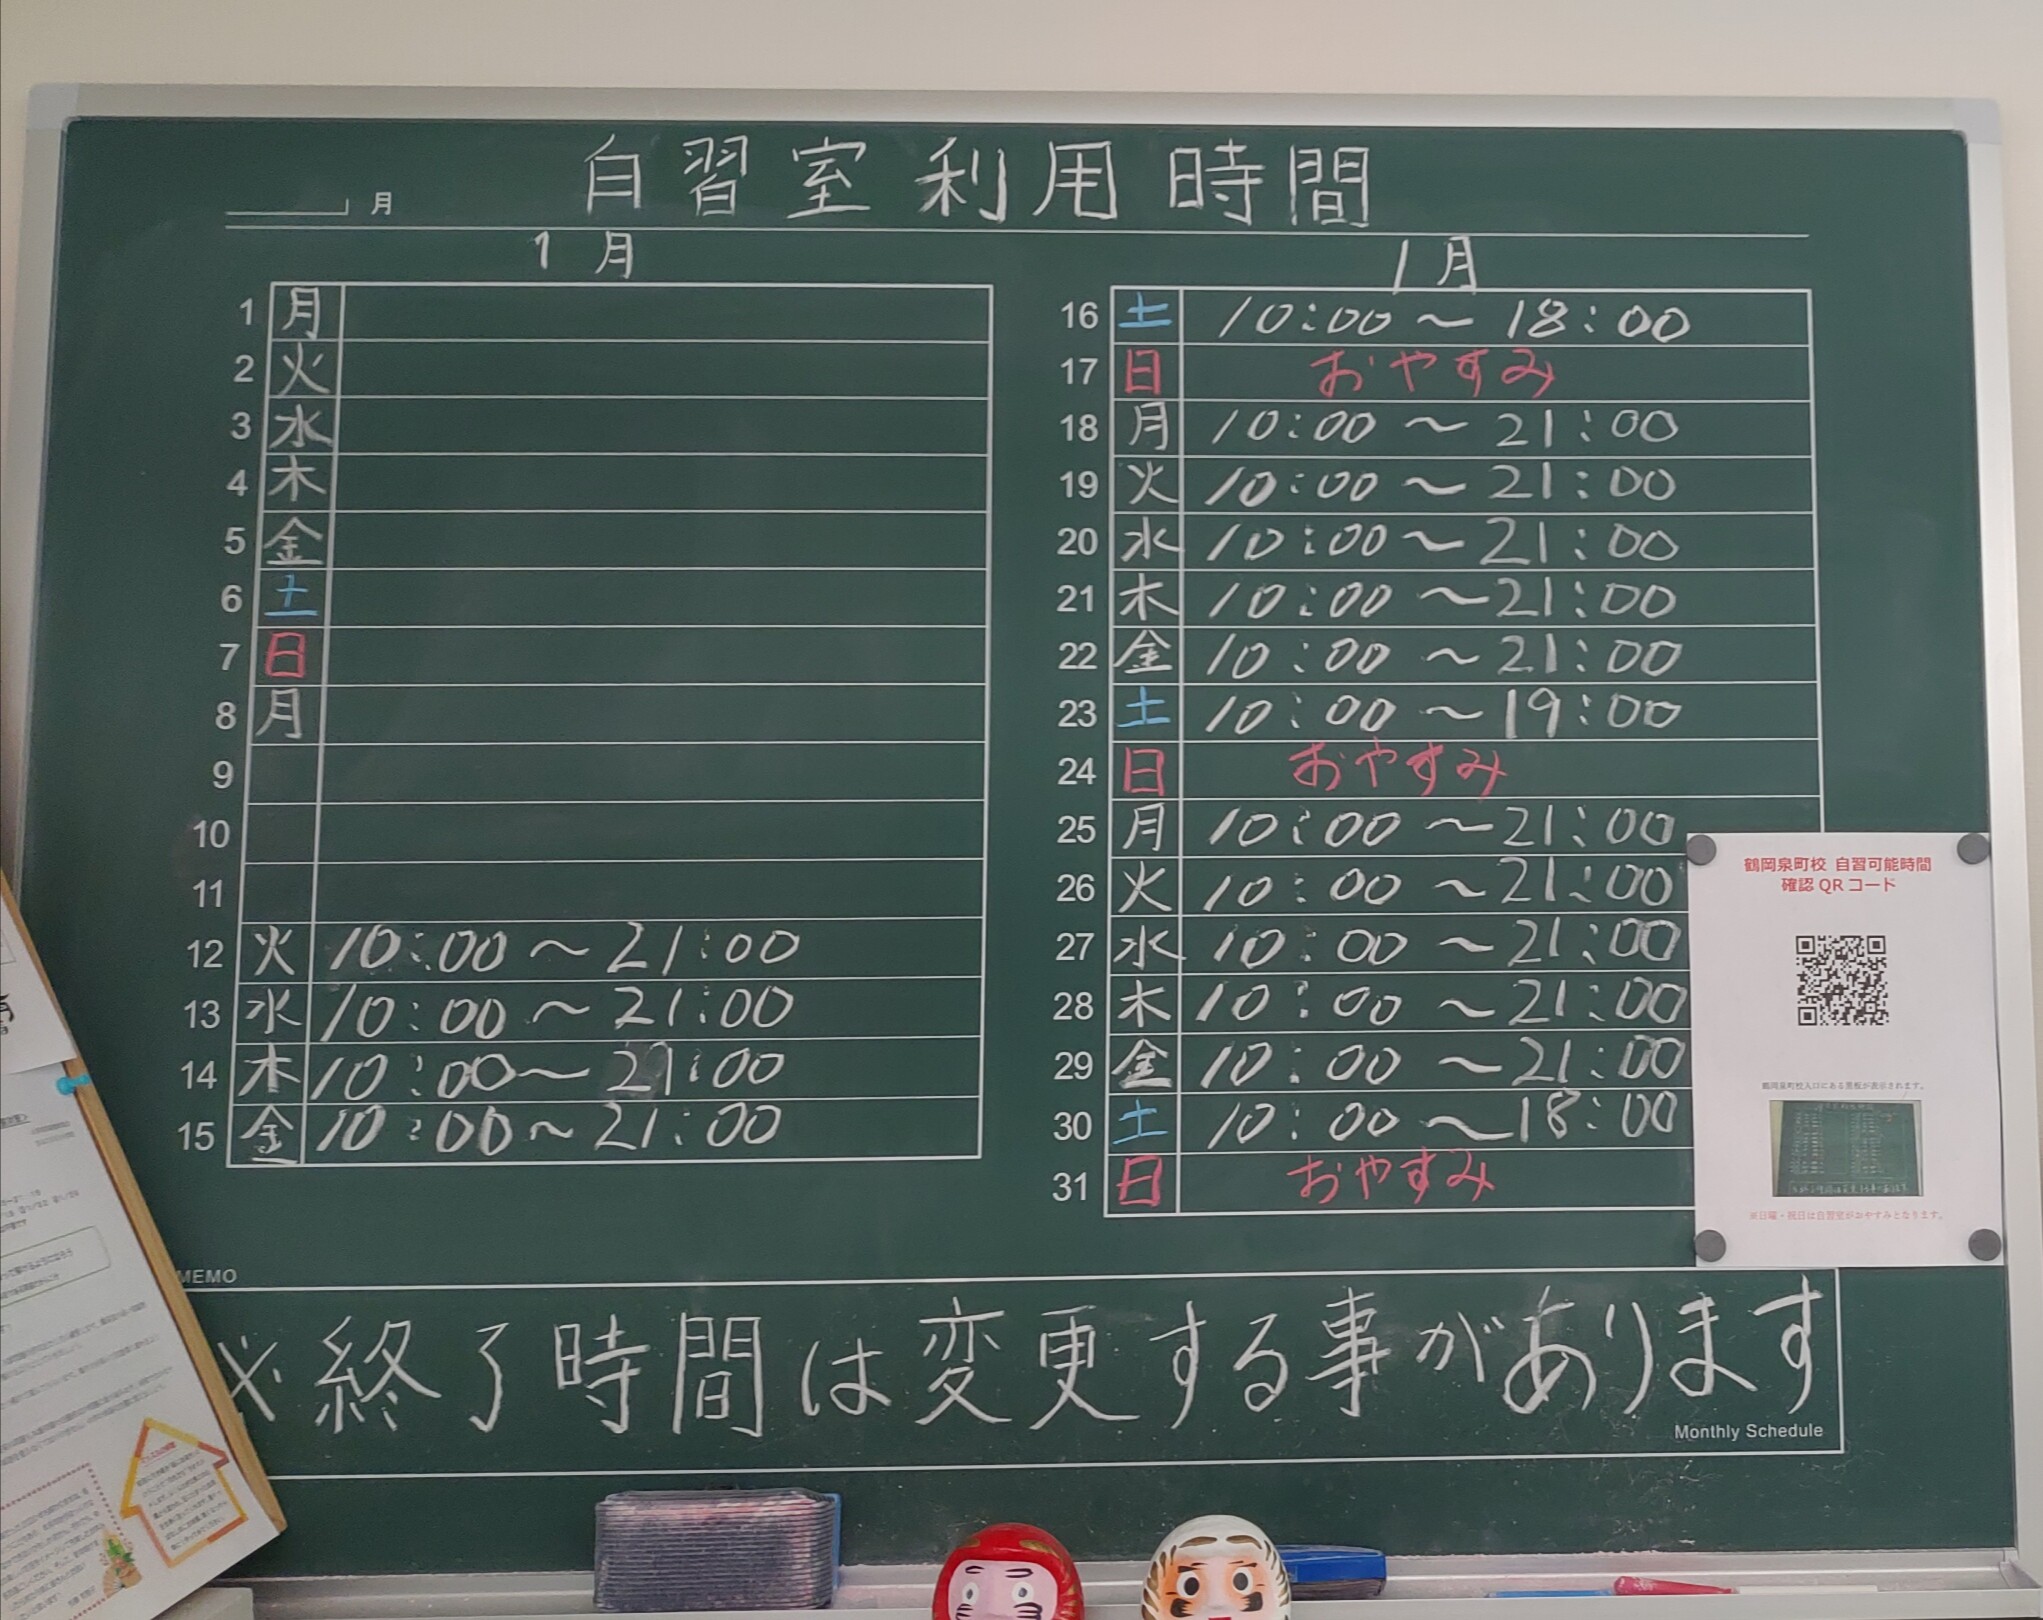 自習室利用時間
月
1月
1 月
2 火
3 水
4 木
5 金
6 土
7 日
8 月
9
10
11
12 火 10:00～21:00
13 水 10:00～21:00
14 木 10:00～21:00
15 金 10:00～21:00
1月
16 土 10:00～18:00
17 日 おやすみ
18 月 10:00～21:00
19 火 10:00～21:00
20 水 10:00～21:00
21 木 10:00～21:00
22 金 10:00～21:00
23 土 10:00～19:00
24 日 おやすみ
25 月 10:00～21:00
26 火 10:00～21:00
27 水 10:00～21:00
28 木 10:00～21:00
29 金 10:00～21:00
30 土 10:00～18:00
31 日 おやすみ
鶴岡泉町校 自習可能時間
確認QRコード
鶴岡泉町校入口にある黒板が表示されます。
※日曜・祝日は自習室がおやすみとなります。
MEMO
※終了時間は変更する事があります
Monthly Schedule